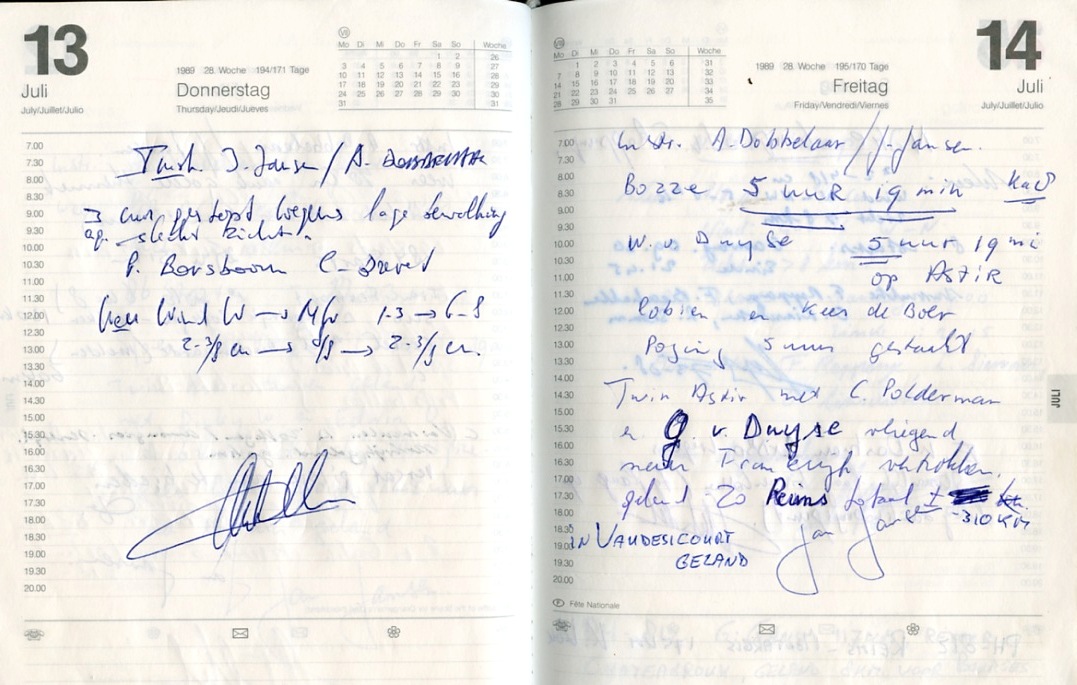 13
Juli
July/Juillet/Julio
1989 28. Woche 194/171 Tage
Donnerstag
Thursday/Jeudi/Jueves
VII
Mo Di Mi Do Fr Sa So Woche
1 2 26
3 4 5 6 7 8 9 27
10 11 12 13 14 15 16 28
17 18 19 20 21 22 23 29
24 25 26 27 28 29 30 30
31 31
7.00
7.30
8.00
8.30
9.00
9.30
10.00
10.30
11.00
11.30
12.00
12.30
13.00
13.30
14.00
14.30
15.00
15.30
16.00
16.30
17.00
17.30
18.00
18.30
19.00
19.30
20.00
J. Jansen / A.
gestopt wegens lage bewolking
slecht zicht
P. Borsboom C.
Wind W → NW 1-3 →
2-3/8 cu → → 2-3/8 cu.
14
Juli
July/Juillet/Julio
1989 28. Woche 195/170 Tage
Freitag
Friday/Vendredi/Viernes
VIII
Mo Di Mi Do Fr Sa So Woche
1 2 3 4 5 6 31
7 8 9 10 11 12 13 32
14 15 16 17 18 19 20 33
21 22 23 24 25 26 27 34
28 29 30 31 35
7.00
7.30
8.00
8.30
9.00
9.30
10.00
10.30
11.00
11.30
12.00
12.30
13.00
13.30
14.00
14.30
15.00
15.30
16.00
16.30
17.00
17.30
18.00
18.30
19.00
19.30
20.00
Instr. A. Dobbelaar / J. Jansen.
Bozze 5 UUR 19 min Ka8
W. v Duyse 5 uur 19 mi
op Astir
Robien en Kees de Boer
Poging 5 uur gestaakt
Twin Astir met C. Polderman
en G v. Duyse vliegend
naar Frankrijk vertrokken.
geland ZO Reims totaal ± km.
310 KM
Jan Jansen
IN VAUDESICOURT
GELAND
F Fête Nationale
JULI